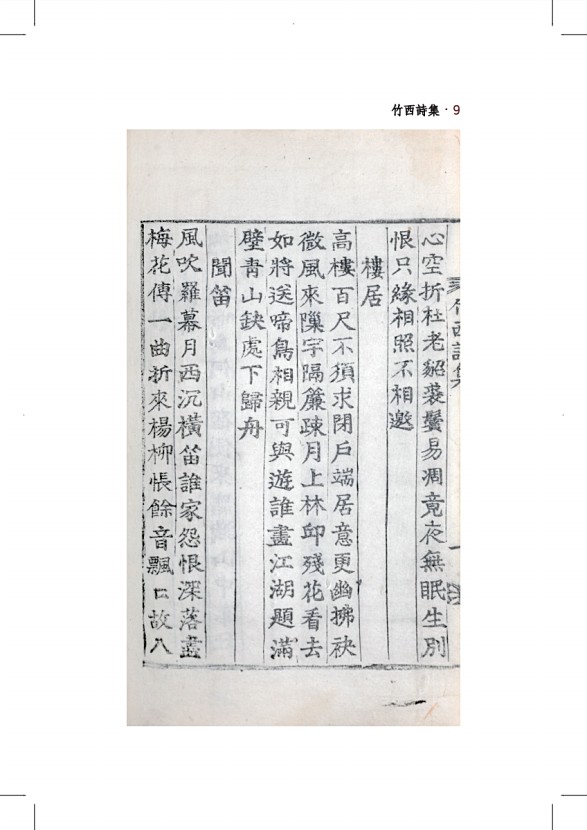 竹西詩集 · 9
竹西詩集
心空折杜老貂裘鬢易凋竟夜無眠生別
恨只緣相照不相邀
樓居
高樓百尺不須求閉戶端居意更幽拂袂
微風來隟宇隔簾疎月上林邱殘花看去
如將送啼鳥相親可與遊誰畫江湖題滿
壁靑山缺處下歸舟
聞笛
風吹羅幕月西沉橫笛誰家怨恨深落盡
梅花傳一曲折來楊柳悵餘音飄口故八